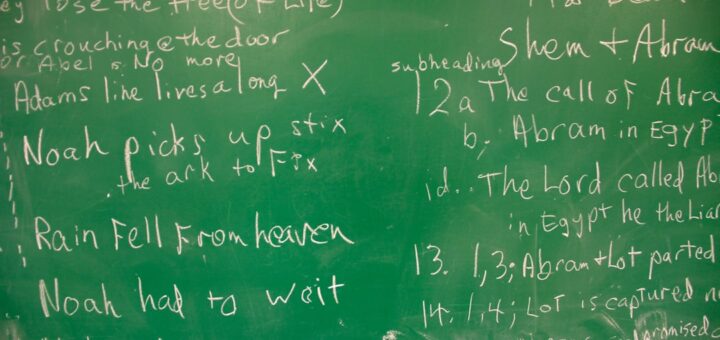 ey lose the tree (of Life)
is crouching @ the door
or Abel is No more
Adams line lives along X
Noah picks up stix
the ark to Fix
Rain Fell From heaven
Noah had to wait
Shem + Abram
subheading
12a The call of Abra
b. Abram in Egyp
id.. The Lord called Ab
in Egypt he the Liar
13. 1,3; Abram + Lot parted
14. 1,4; Lot is captured n
promised